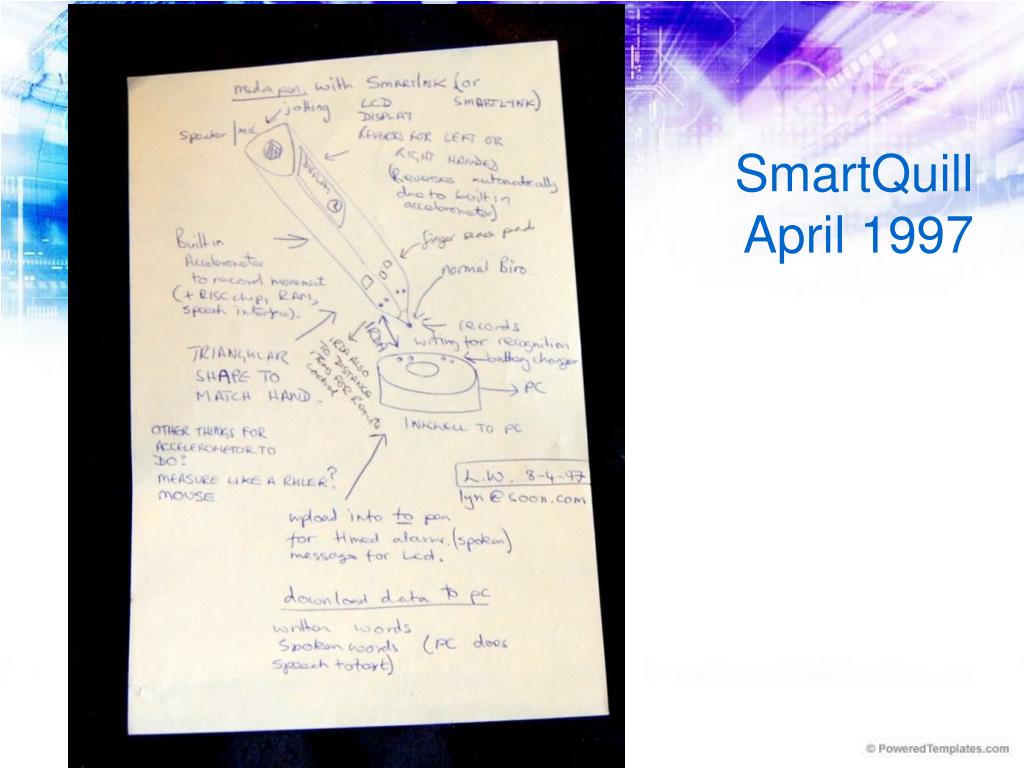 media pen with SMARTINK (or
SMARTLYNK)
jotting
LCD
DISPLAY
speaker | mic
REVERSES FOR LEFT OR
RIGHT HANDED
(Reverses automatically
due to built in
accelerometer)
DISPLAY
finger sense pads
normal Biro.
Built in
Accelerometer
to record movement
(+ RISC chip, RAM,
speech interface).
records
writing for recognition
battery charger
IRDA
IRDA ALSO
TO DISTANCE
FOR REMOTE
control
PC
TRIANGULAR
SHAPE TO
MATCH HAND.
INKWELL TO PC
OTHER THINGS FOR
ACCELEROMETOR TO
DO?
MEASURE LIKE A RULER?
MOUSE
L.W. 8-4-97
lyn@soon.com
upload into to pen
for timed alarms. (spoken)
message for Lcd.
download data to pc
written words
Spoken words (PC does
speech to text)
SmartQuill
April 1997
© PoweredTemplates.com